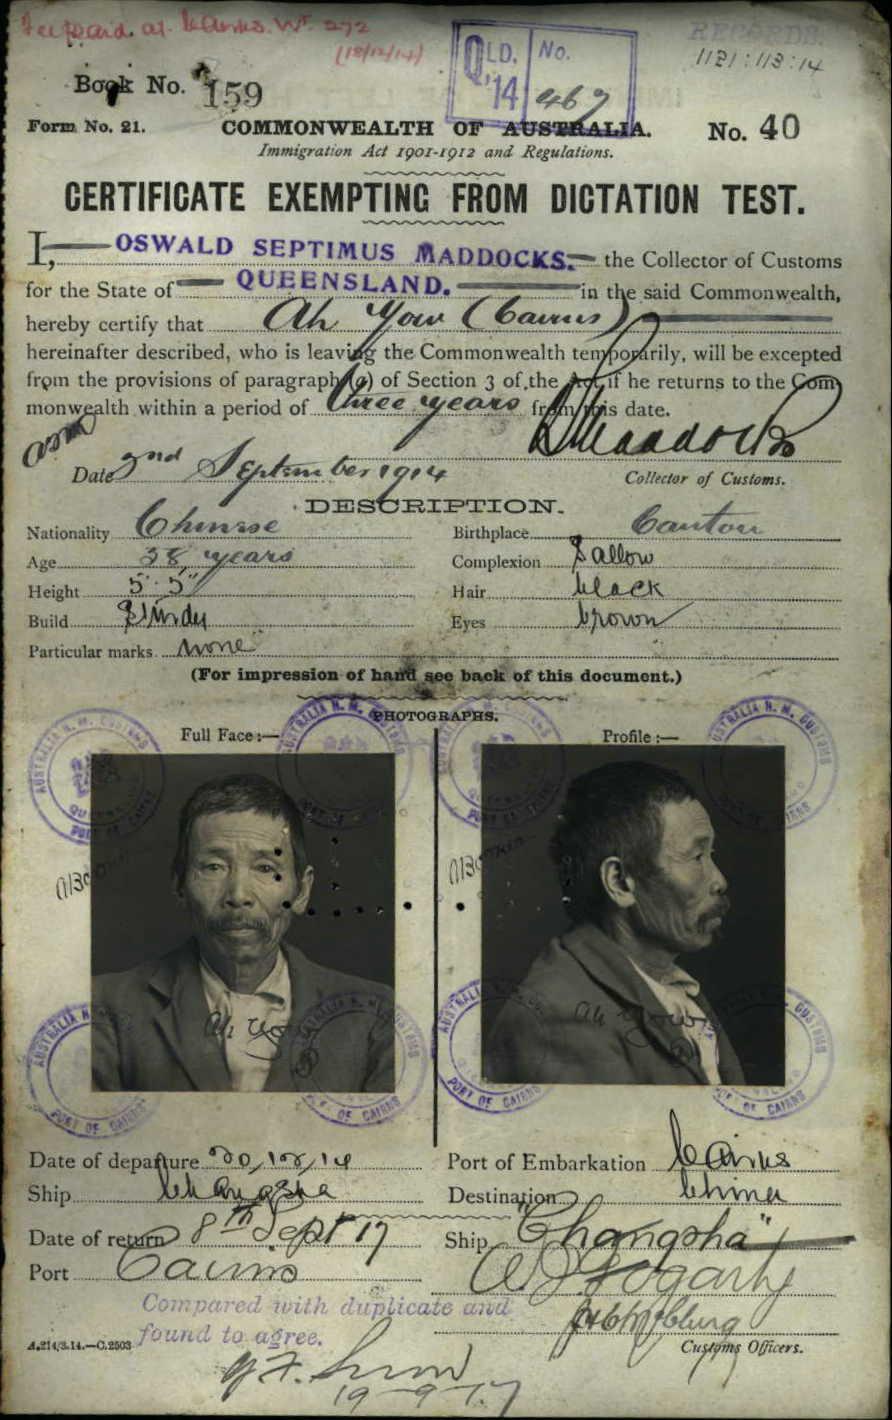 Fee paid at Cairns. Wt 272
(18/12/14)
QLD. No.
'14 467
RECORDS.
1121:113:14
Book No. 159
Form No. 21. COMMONWEALTH OF AUSTRALIA. No. 40
Immigration Act 1901-1912 and Regulations.
CERTIFICATE EXEMPTING FROM DICTATION TEST.
I, OSWALD SEPTIMUS MADDOCKS. the Collector of Customs
for the State of QUEENSLAND. in the said Commonwealth,
hereby certify that Ah Yow (Cairns)
hereinafter described, who is leaving the Commonwealth temporarily, will be excepted
from the provisions of paragraph (a) of Section 3 of the Act if he returns to the Com-
monwealth within a period of three years from this date.
OSMaddocks
Date 2nd September 1914 Collector of Customs.
DESCRIPTION.
Nationality Chinese Birthplace Canton
Age 38 years Complexion Sallow
Height 5' 5" Hair black
Build Sturdy Eyes brown
Particular marks none
(For impression of hand see back of this document.)
PHOTOGRAPHS.
Full Face:— Profile:—
AUSTRALIA H. M. CUSTOMS
PORT OF CAIRNS
Ah Yow
Ah Yow
Date of departure 20/12/14 Port of Embarkation Cairns
Ship Changsha Destination China
Date of return 8th Sept 17 Ship "Changsha"
Port Cairns
Fogarty
Compared with duplicate and
found to agree.
A.214/3.14.—C.2503 Customs Officers.
19-9-17